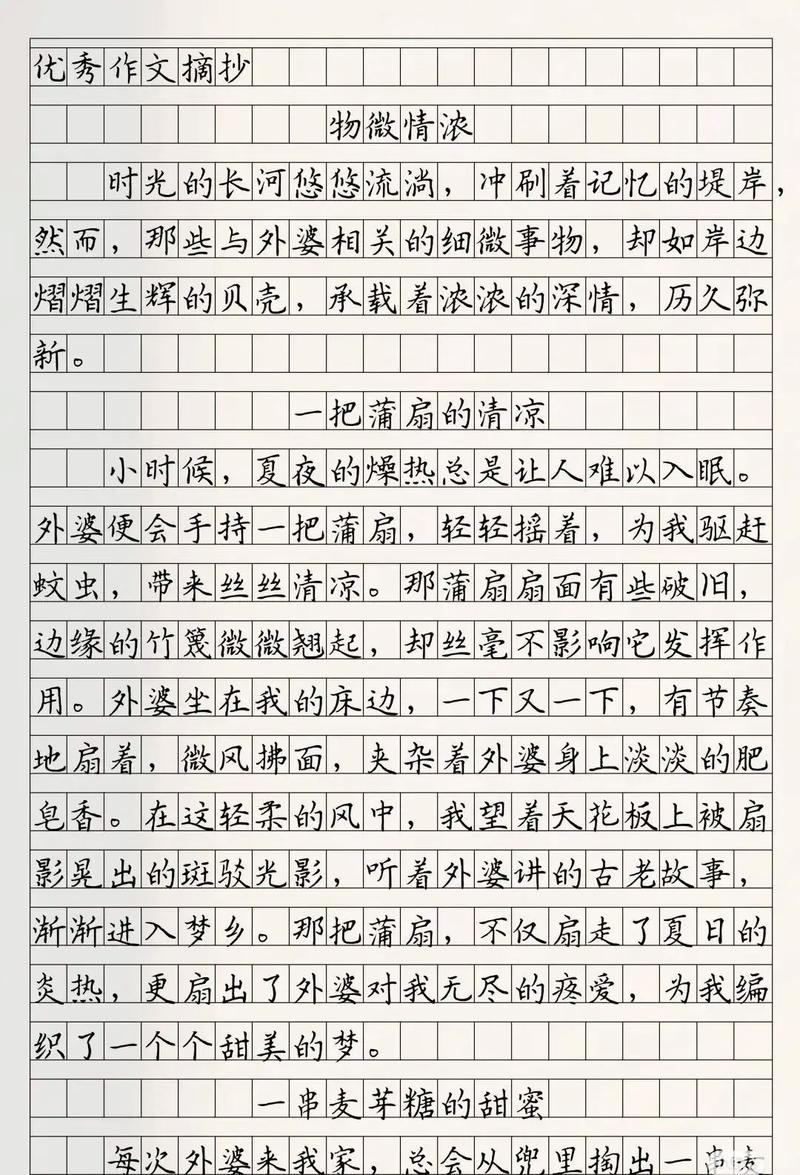 优秀作文摘抄
物微情浓
时光的长河悠悠流淌，冲刷着记忆的堤岸，
然而，那些与外婆相关的细微事物，却如岸边
熠熠生辉的贝壳，承载着浓浓的深情，历久弥
新。
一把蒲扇的清凉
小时候，夏夜的燥热总是让人难以入眠。
外婆便会手持一把蒲扇，轻轻摇着，为我驱赶
蚊虫，带来丝丝清凉。那蒲扇扇面有些破旧，
边缘的竹篾微微翘起，却丝毫不影响它发挥作
用。外婆坐在我的床边，一下又一下，有节奏
地扇着，微风拂面，夹杂着外婆身上淡淡的肥
皂香。在这轻柔的风中，我望着天花板上被扇
影晃出的斑驳光影，听着外婆讲的古老故事，
渐渐进入梦乡。那把蒲扇，不仅扇走了夏日的
炎热，更扇出了外婆对我无尽的疼爱，为我编
织了一个个甜美的梦。
一串麦芽糖的甜蜜
每次外婆来我家，总会从兜里掏出一串麦